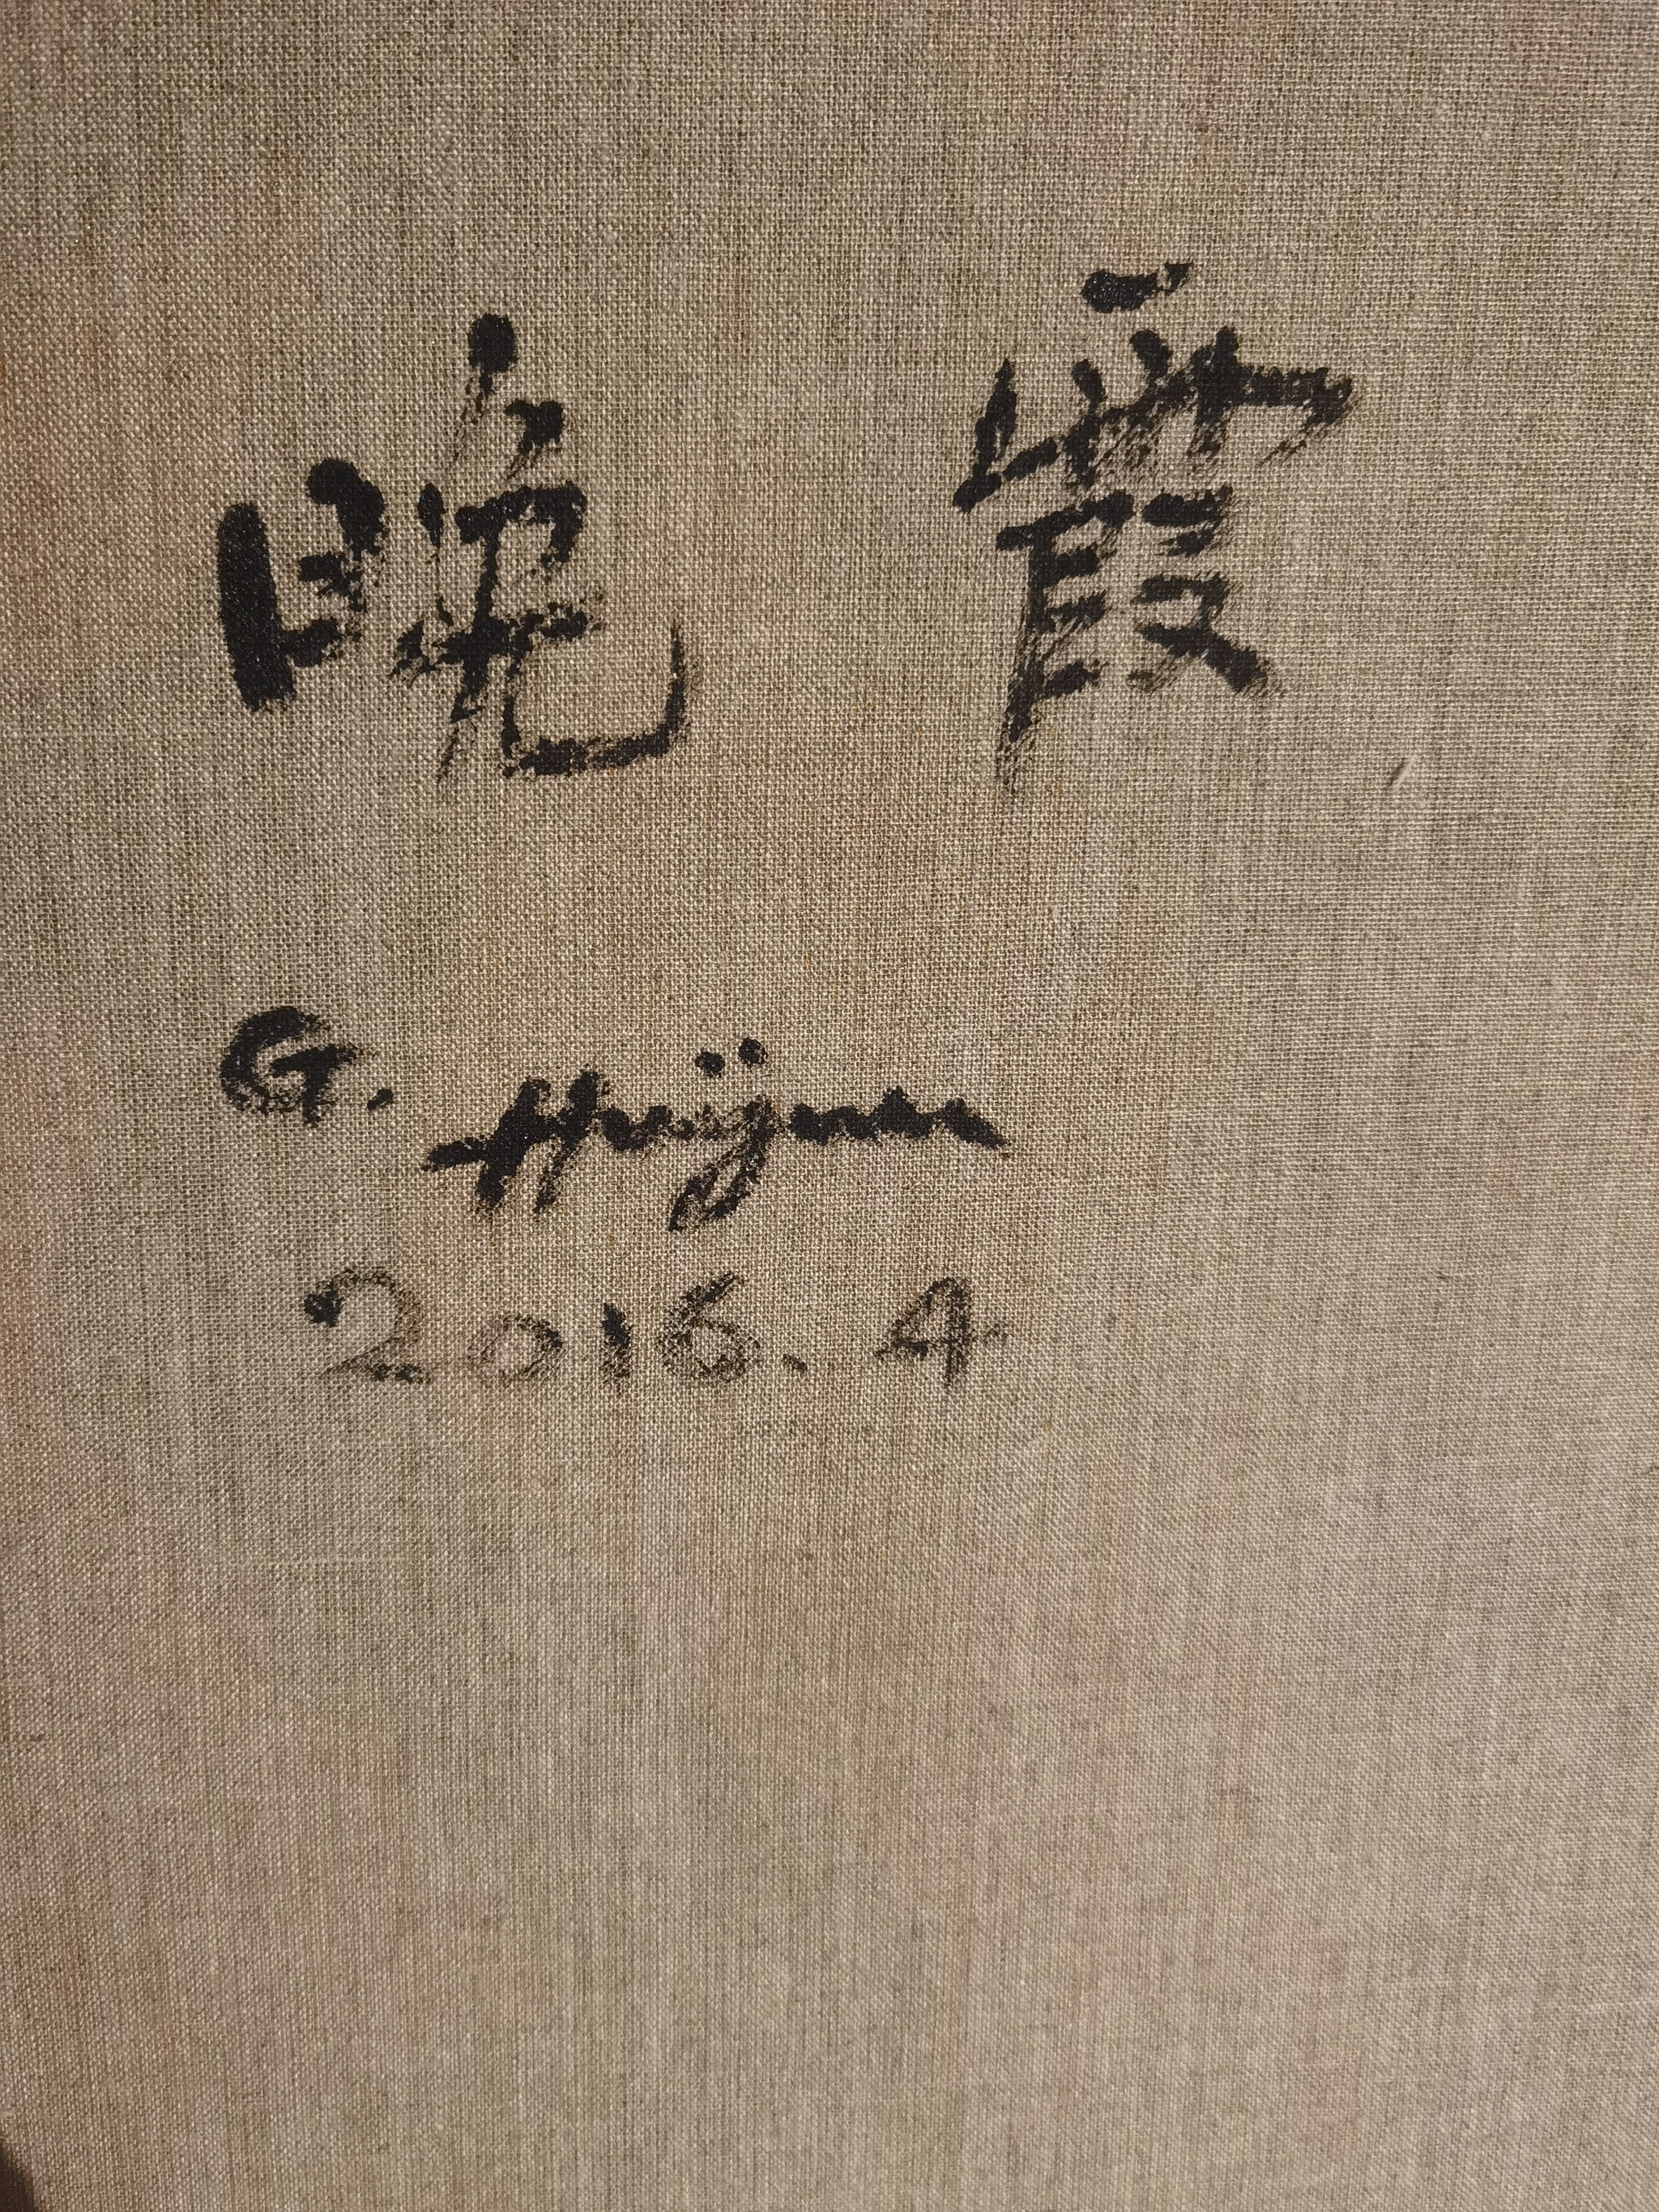 晚 霞
G. Huijnen
2016.4